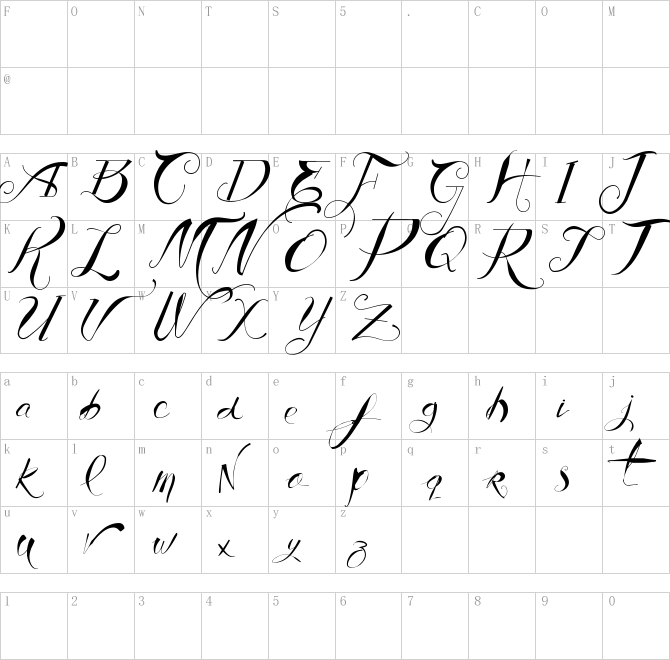 F O N T S 5 . C O M
@
A B C D E F G H I J
A B C D E F G H I J
K L M N O P Q R S T
K L M N O P Q R S T
U V W X Y Z
U V W X Y Z
a b c d e f g h i j
a b c d e f g h i j
k l m n o p q r s t
k l m N o p q r s t
u v w x y z
u v w x y z
1 2 3 4 5 6 7 8 9 0